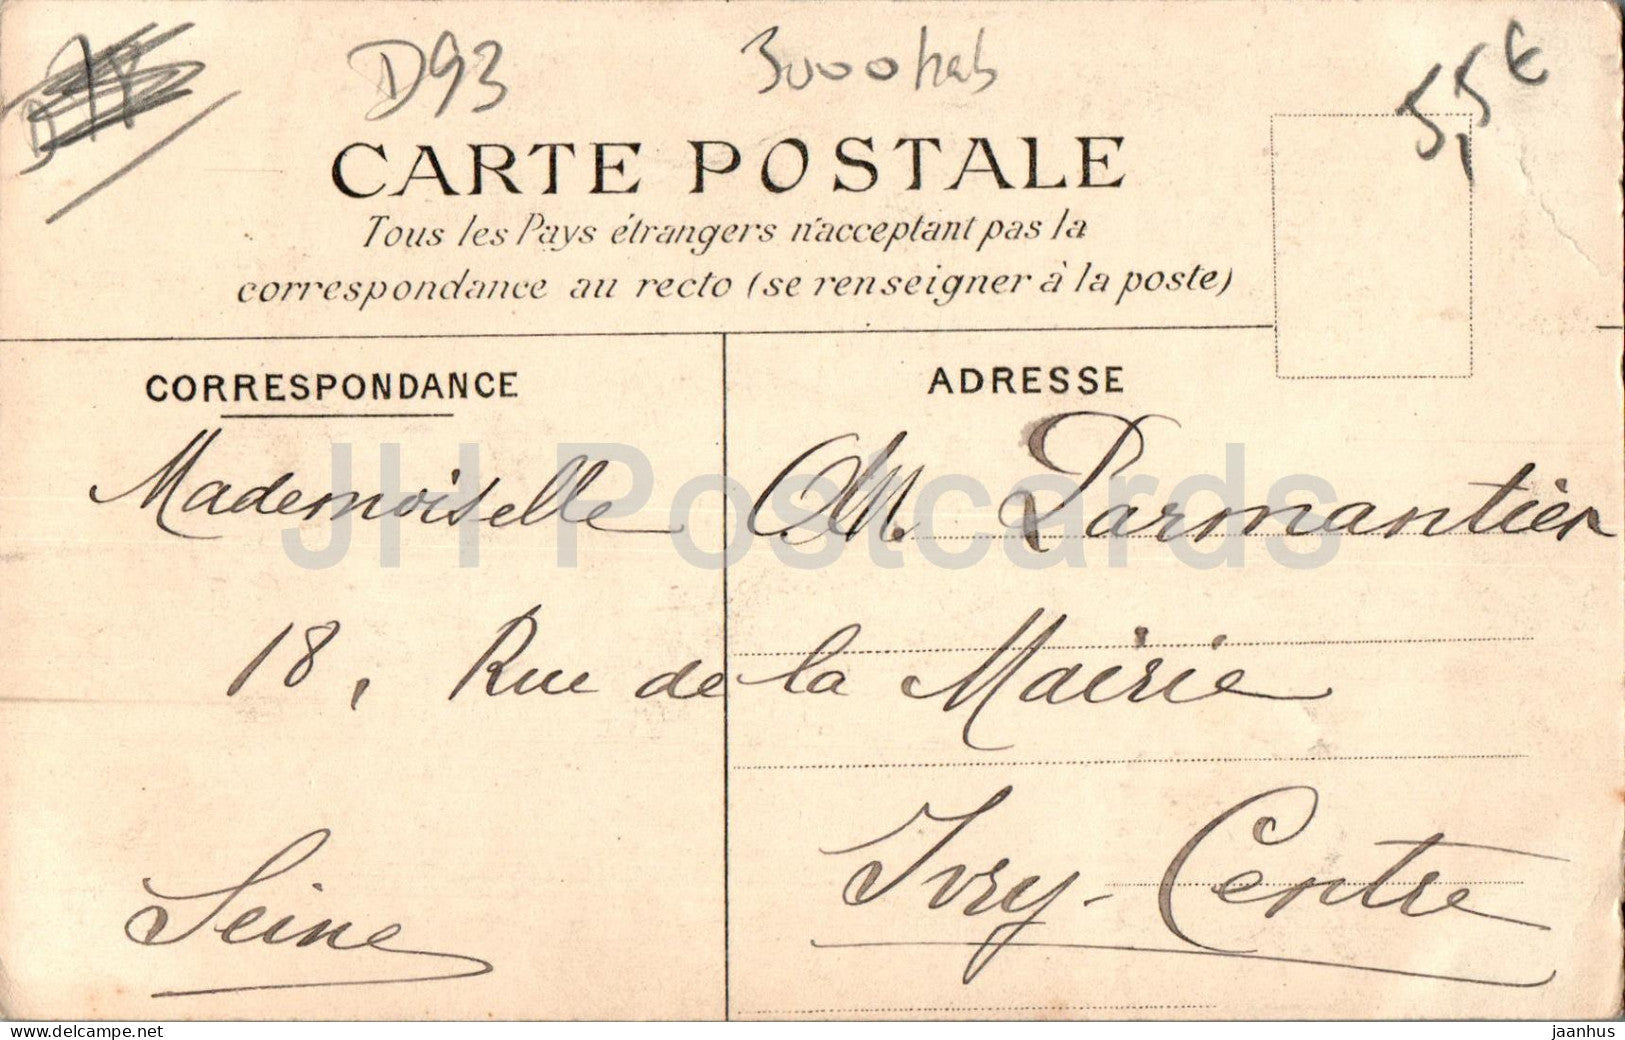 D93 3000 hab 5,5€
CARTE POSTALE
Tous les Pays étrangers n'acceptant pas la
correspondance au recto (se renseigner à la poste)
CORRESPONDANCE ADRESSE
Mademoiselle M. Parmantier
18, Rue de la Mairie
Ivry-Centre
Seine
JH Postcards
jaanhus